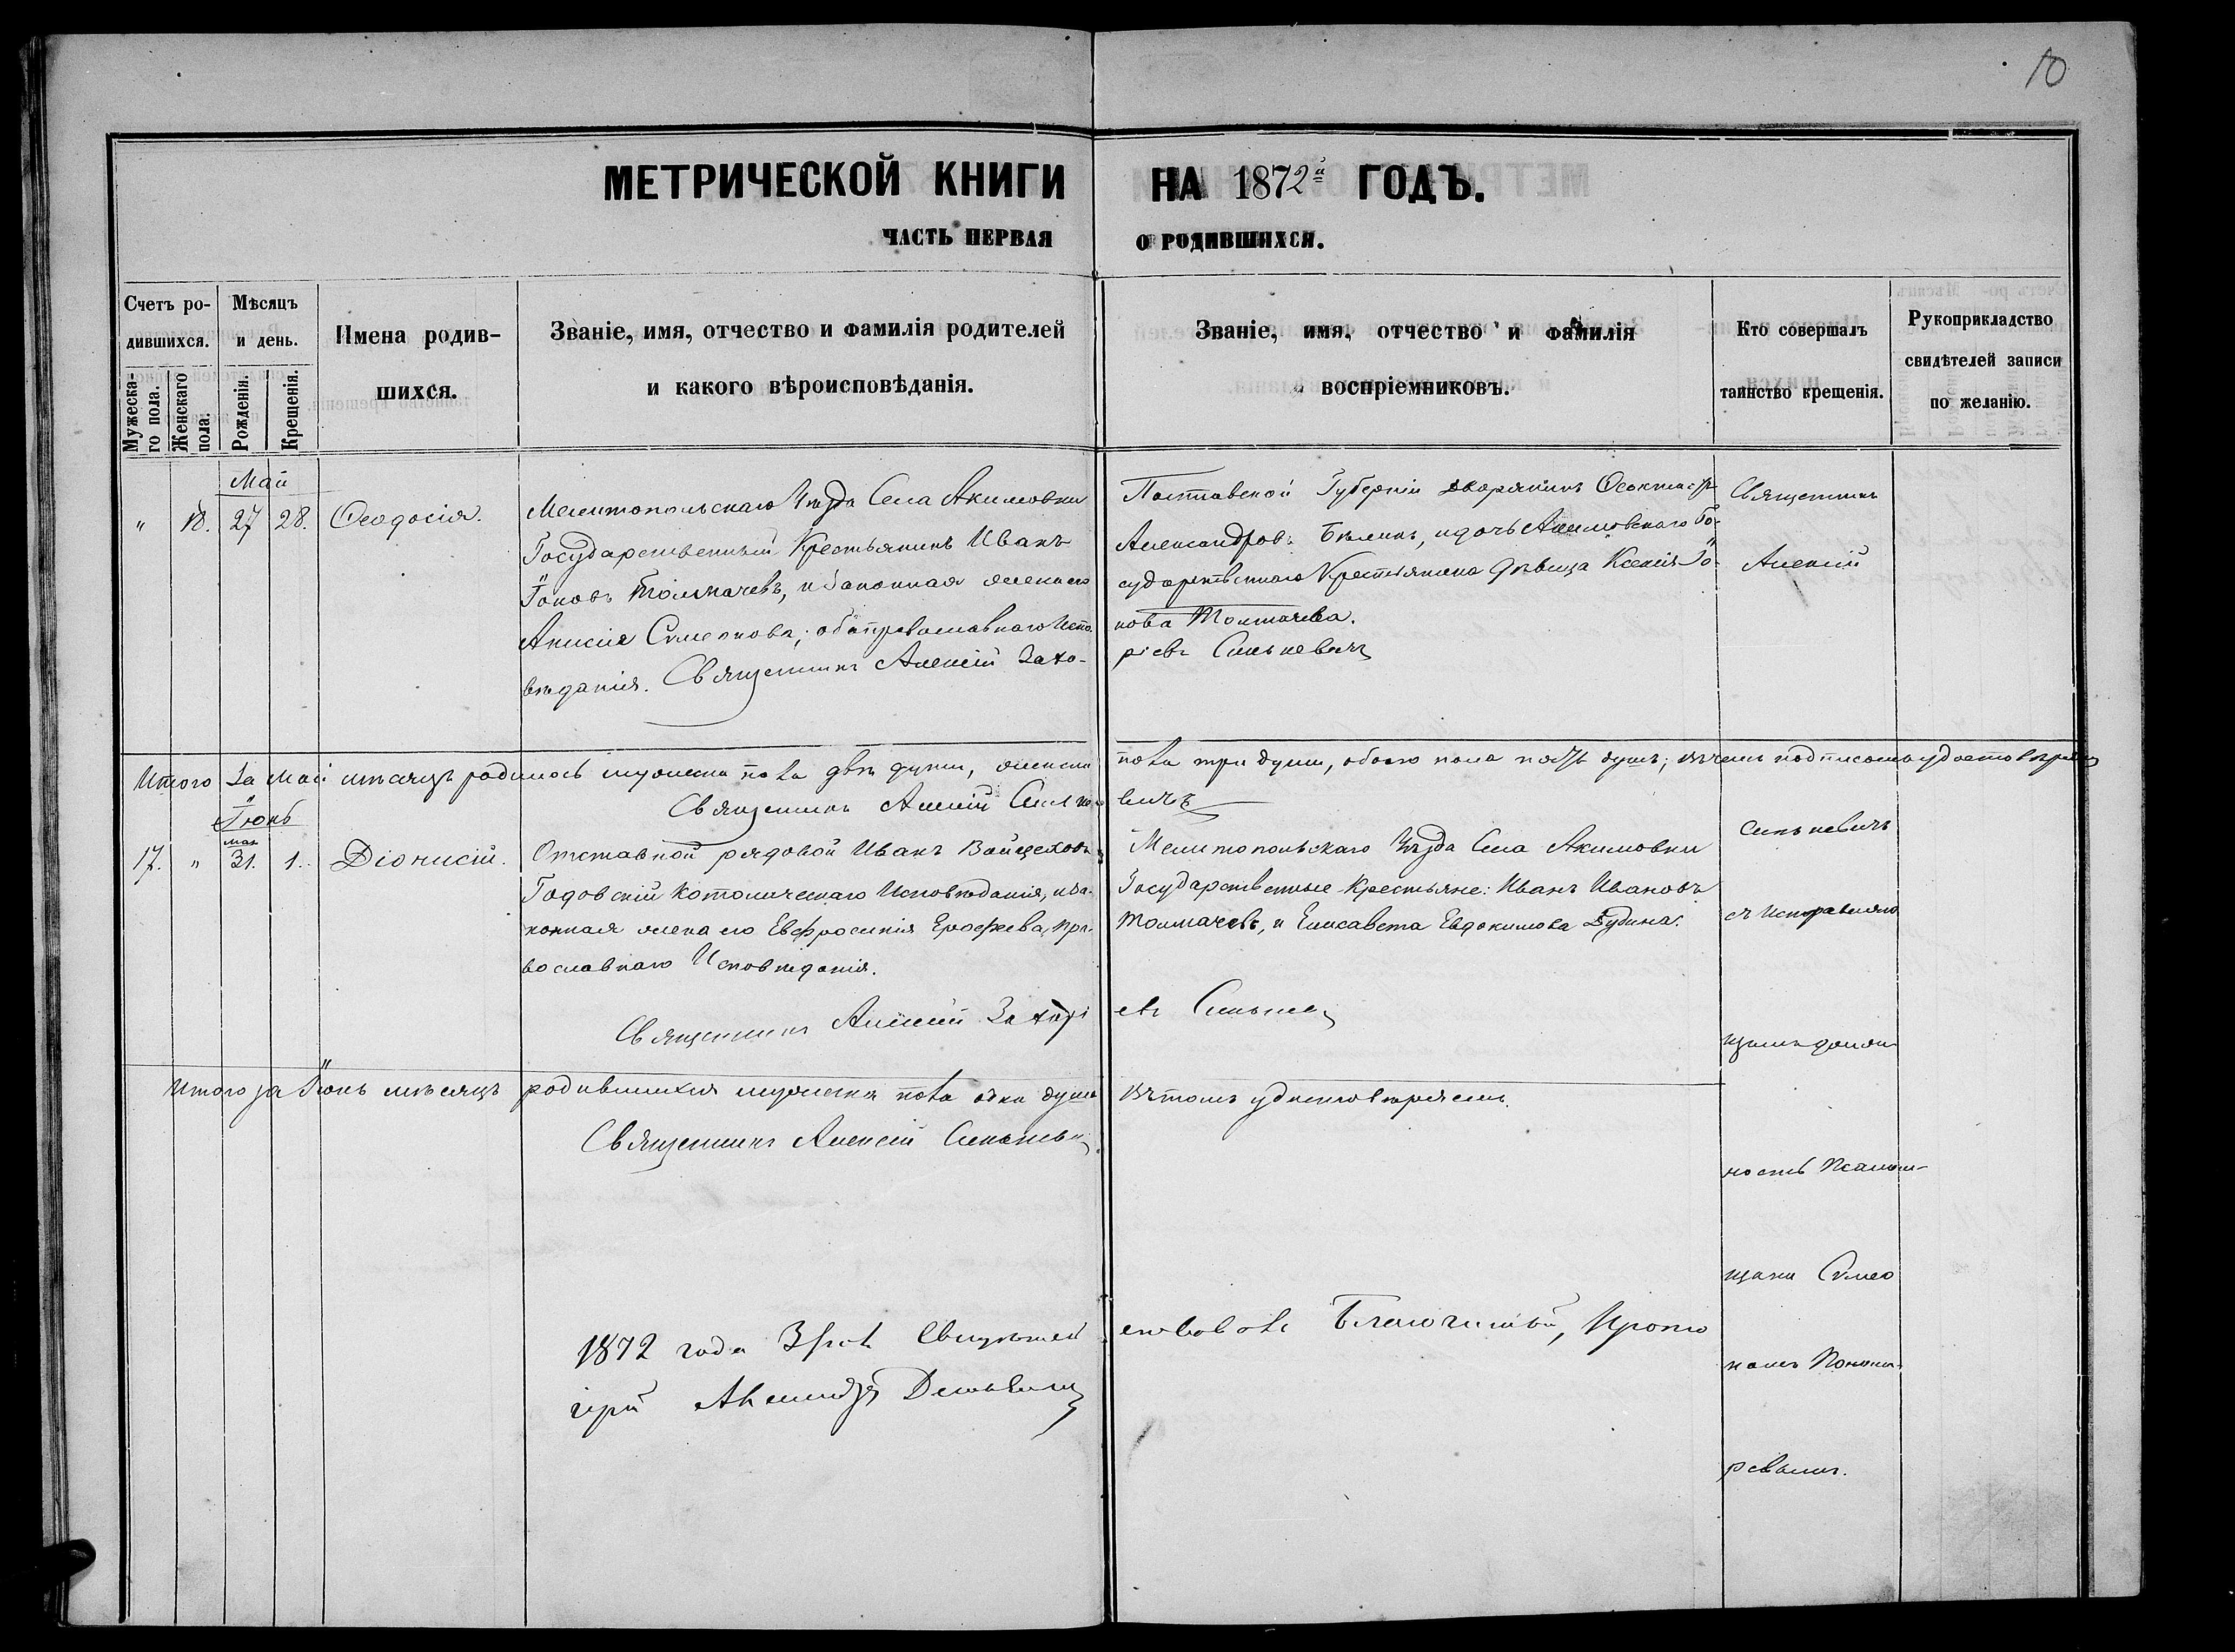 10
МЕТРИЧЕСКОЙ КНИГИ НА 1872й ГОДЪ.
ЧАСТЬ ПЕРВАЯ О РОДИВШИХСЯ.
Счетъ ро-
дившихся.
Мужеска-
го пола.
Женскаго
пола.
Мѣсяцъ
и день.
Рожденія.
Крещенія.
Имена родив-
шихся.
Званіе, имя, отчество и фамилія родителей
и какого вѣроисповѣданія.
Званіе, имя, отчество и фамилія
воспріемниковъ.
Кто совершалъ
таинство крещенія.
Рукоприкладство
свидѣтелей записи
по желанію.
Май
" 18. 27 28. Ѳеодосія.
Мелитопольскаго Уѣзда Села Акимовки
Государственный Крестьянинъ Иванъ
Іоновъ Толмачевъ, и законная жена его
Анисія Симеонова; оба православнаго Испо-
вѣданія. Священникъ Алексій Заха-
Полтавской Губерніи дворянинъ Ѳеоктистъ
Александровъ Бѣлинъ, и дочь Акимовскаго Го-
сударственнаго Крестьянина дѣвица Ксенія Іо-
нова Толмачева.
ріевъ Синькевичъ
Священникъ
Алексій
Итого за Май мѣсяцъ родилось мужеска пола двѣ души, женска пола три души, обоего пола пять душъ; въ чемъ подписомъ удостовѣряемъ
Священникъ Алексій Синькевичъ
Іюнь
мая
17. " 31. 1. Діонисій.
Отставной рядовой Иванъ Войцеховъ
Годовскій католическаго Исповѣданія, и за-
конная жена его Евфросинія Ерофеева, пра-
вославнаго Исповѣданія.
Священникъ Алексій Захарі
Мелитопольскаго Уѣзда Села Акимовки
Государственные Крестьяне: Иванъ Ивановъ
Толмачевъ, и Елисавета Евдокимова Дудина.
евъ Синькев
Синькевичъ
съ исправляю
щимъ долж
ность Псалом-
щика Симео
номъ Поном
ревымъ.
Итого за Іюнь мѣсяцъ родившихся мужеска пола одна душа въ томъ удостовѣряемъ.
Священникъ Алексій Синькевичъ
1872 года Свидѣтельствовалъ Благочинный, Прото
іерей Александръ